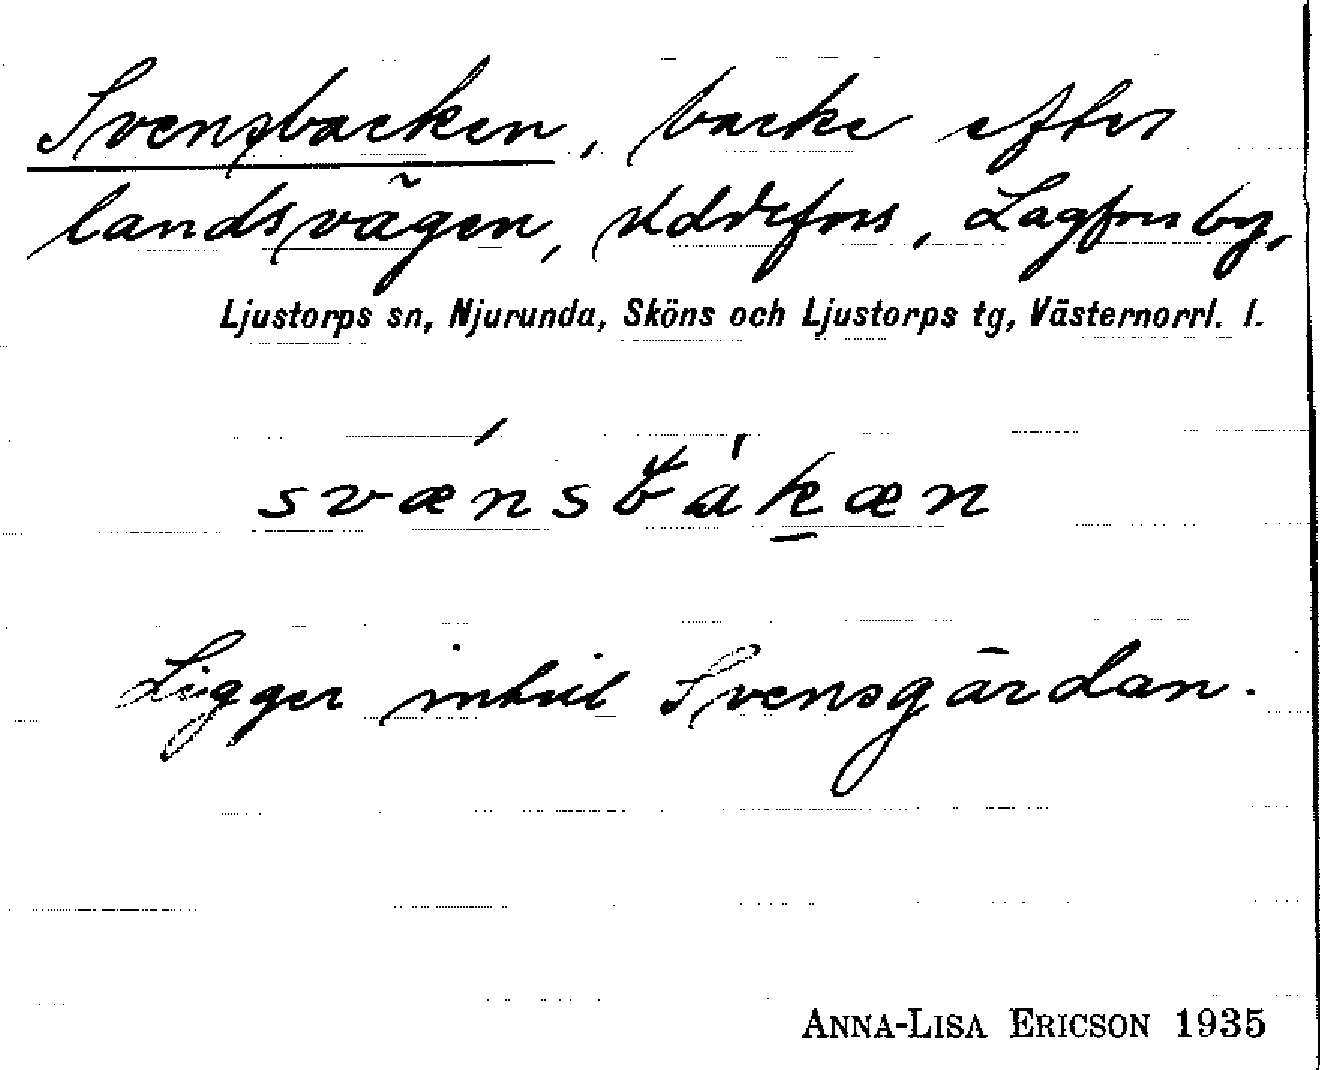 Svensbacken, backe efter
landsvägen, Uddefors, Lagfors by,
Ljustorps sn, Njurunda, Sköns och Ljustorps tg, Västernorrl. l.
svænsbakæn
Ligger intill Svensgårdan.
ANNA-LISA ERICSON 1935